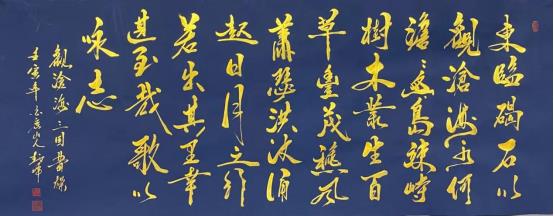 東臨碣石以
觀滄海水何
澹〻島竦峙
樹木叢生百
草豐茂穐风
蕭瑟洪波涌
起日月之行
若出其里幸
甚至哉歌以
咏志
觀滄海三國曹操
壬寅年